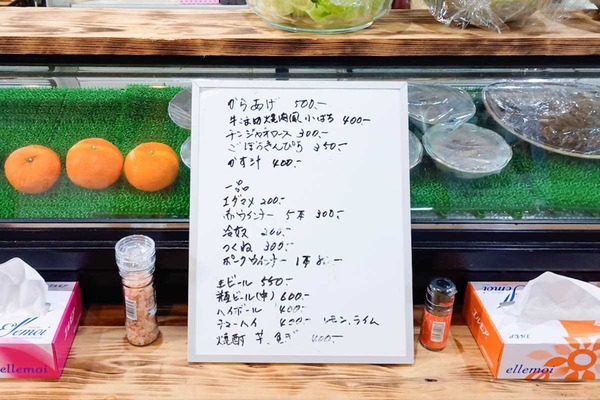 からあげ 500.-
牛ほほ肉焼肉風小ばち 400.-
チンジャオロース 300.-
ごぼうきんぴら 350.-
かす汁 400.-
一品
エダマメ 200.-
赤ウインナー 5本 300.-
冷奴 200.-
つくね 300.-
ポークウインナー 1本
生ビール 550.-
瓶ビール(中) 600.-
ハイボール 400.-
チューハイ 400.- レモン、ライム
焼酎 芋、麦 400.-
ellemoi
ellemoi